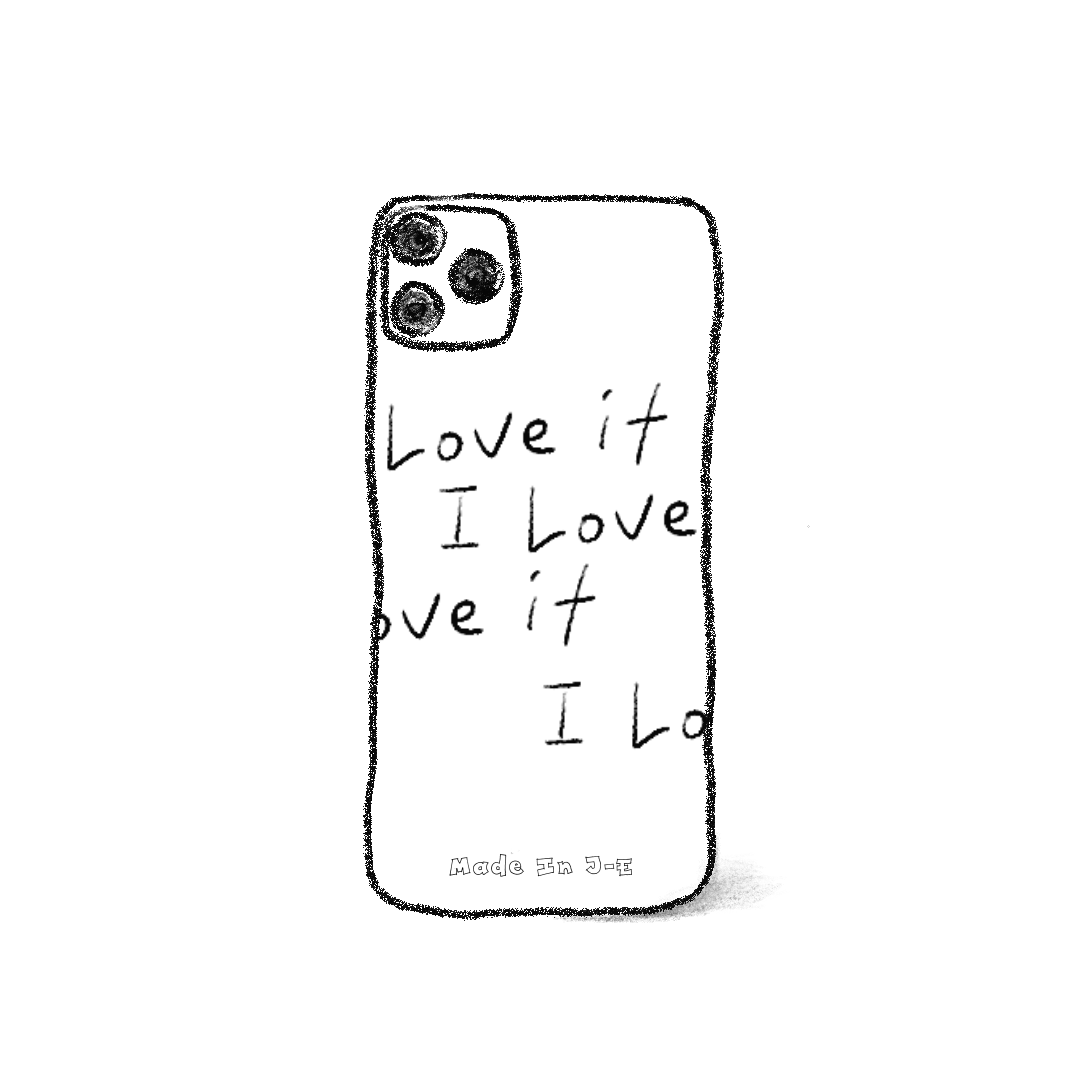 Love it
I Love
ove it
I Lo
Made In J-E